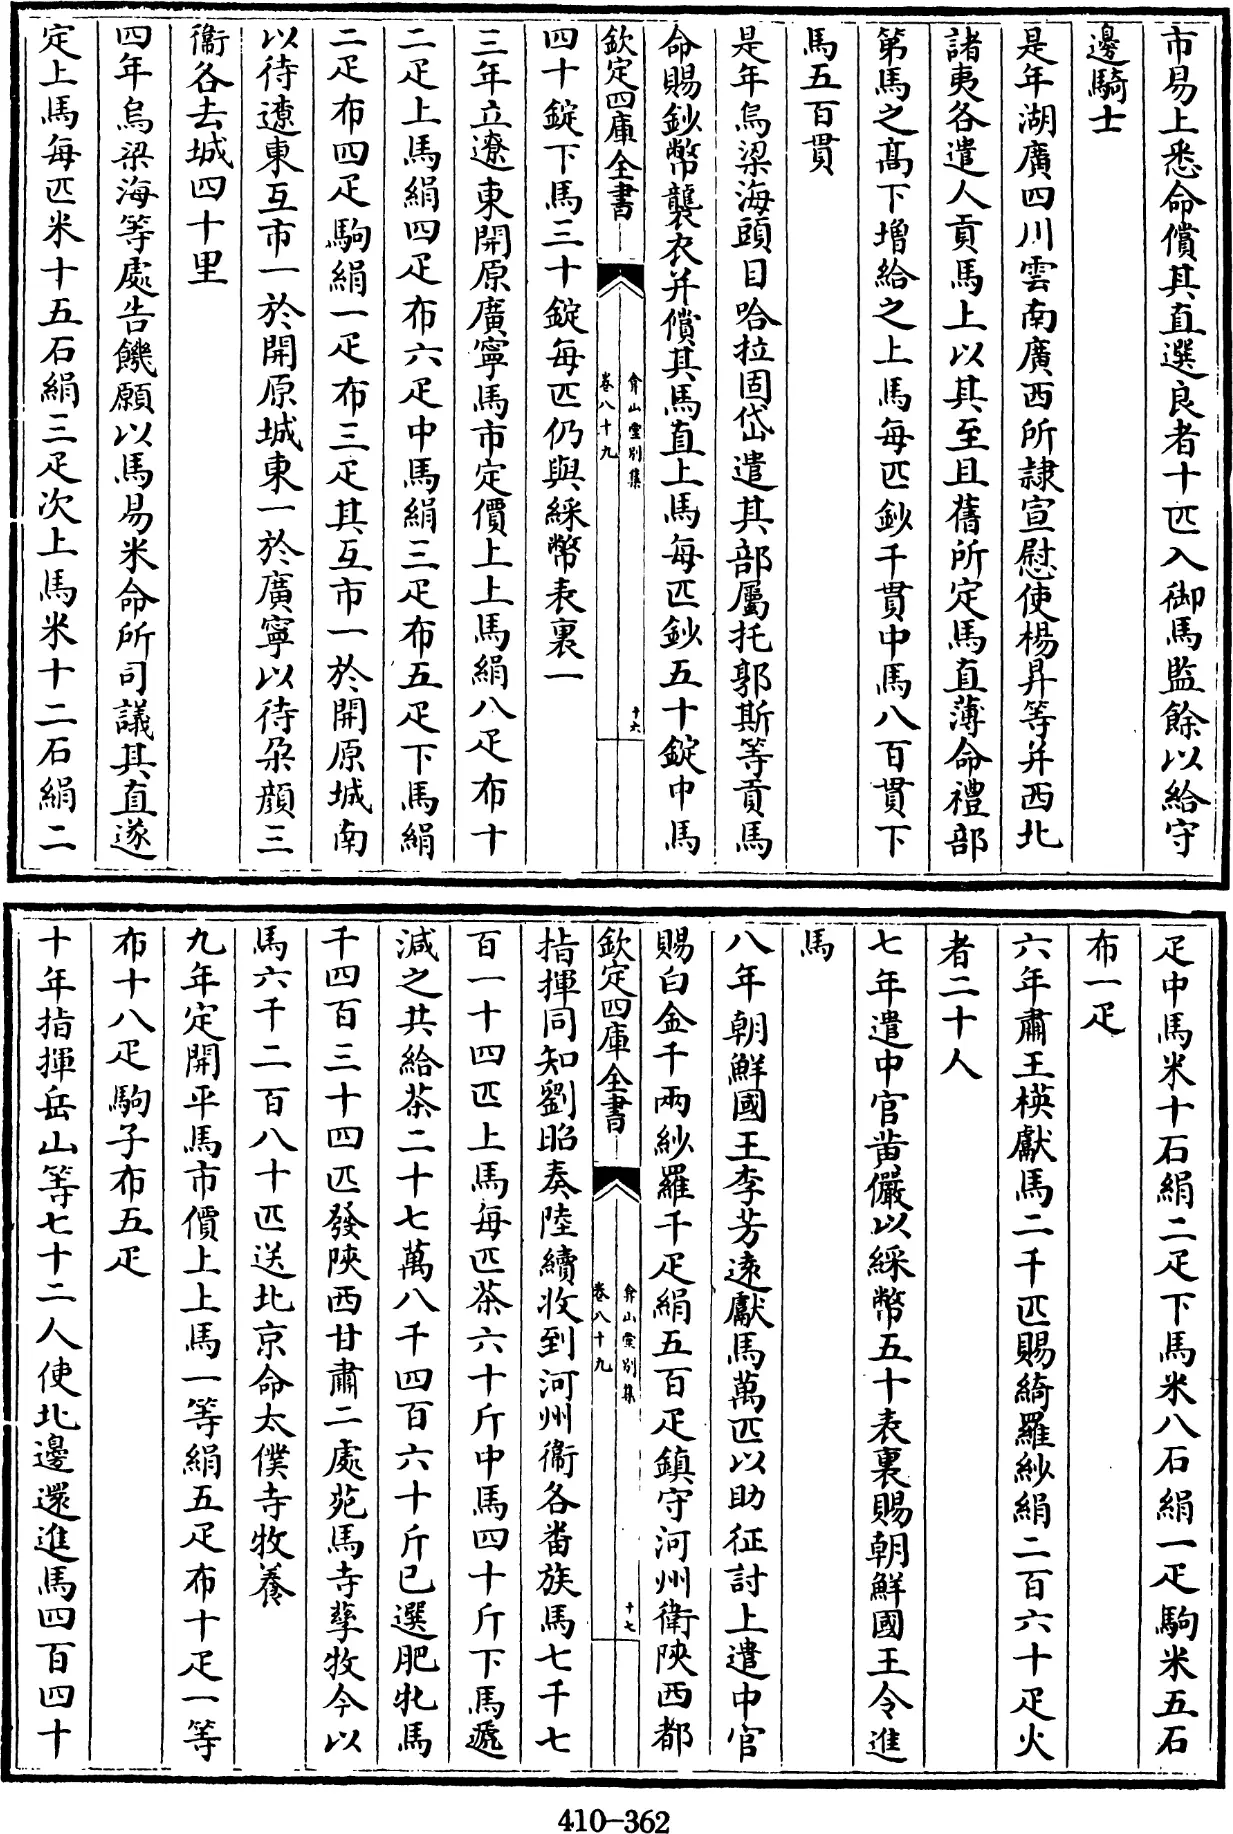 市易上悉命償其直選良者十匹入御馬監餘以給守
邊騎士
是年湖廣四川雲南廣西所隷宣慰使楊昇等并西北
諸夷各遣人貢馬上以其至且舊所定馬直薄命禮部
第馬之高下增給之上馬每匹鈔千貫中馬八百貫下
馬五百貫
是年烏梁海頭目哈拉固岱遣其部屬托郭斯等貢馬
命賜鈔幣襲衣并償其馬直上馬每匹鈔五十錠中馬
欽定四庫全書
弇山堂别集
卷八十九
十六
四十錠下馬三十錠每匹仍與綵幣表裏一
三年立遼東開原廣寧馬市定價上上馬絹八疋布十
二疋上馬絹四疋布六疋中馬絹三疋布五疋下馬絹
二疋布四疋駒絹一疋布三疋其互市一於開原城南
以待遼東互市一於開原城東一於廣寧以待朶顔三
衞各去城四十里
四年烏梁海等處告饑願以馬易米命所司議其直遂
定上馬每匹米十五石絹三疋次上馬米十二石絹二
疋中馬米十石絹二疋下馬米八石絹一疋駒米五石
布一疋
六年肅王楧獻馬二千匹賜綺羅紗絹二百六十疋火
者二十人
七年遣中官黄儼以綵幣五十表裏賜朝鮮國王令進
馬
八年朝鮮國王李芳遠獻馬萬匹以助征討上遣中官
賜白金千兩紗羅千疋絹五百疋鎮守河州衛陜西都
欽定四庫全書
弇山堂别集
卷八十九
十七
指揮同知劉昭奏陸續收到河州衞各畨族馬七千七
百一十四匹上馬每匹茶六十斤中馬四十斤下馬遞
減之共給茶二十七萬八千四百六十斤已選肥牝馬
千四百三十四匹發陜西甘肅二處苑馬寺孳牧今以
馬六千二百八十匹送北京命太僕寺牧養
九年定開平馬市價上上馬一等絹五疋布十疋一等
布十八疋駒子布五疋
十年指揮岳山等七十二人使北邊還進馬四百四十
410-362